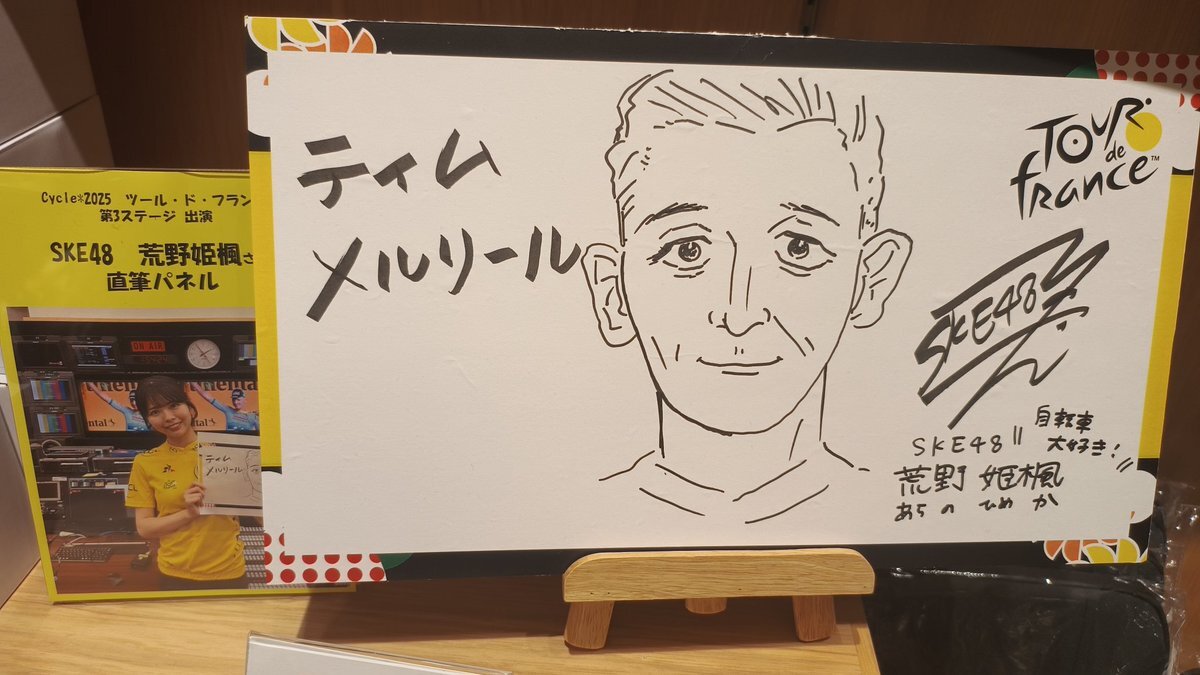 Cycle*2025 ツール・ド・フラン
第3ステージ 出演
SKE48 荒野姫楓さ
直筆パネル
ON AIR
ティム
メルリール
ティム
メルリール
TOUR
de
france
TM
SKE48
SKE48
自転車
大好き!
荒野 姫楓
あらの ひめか